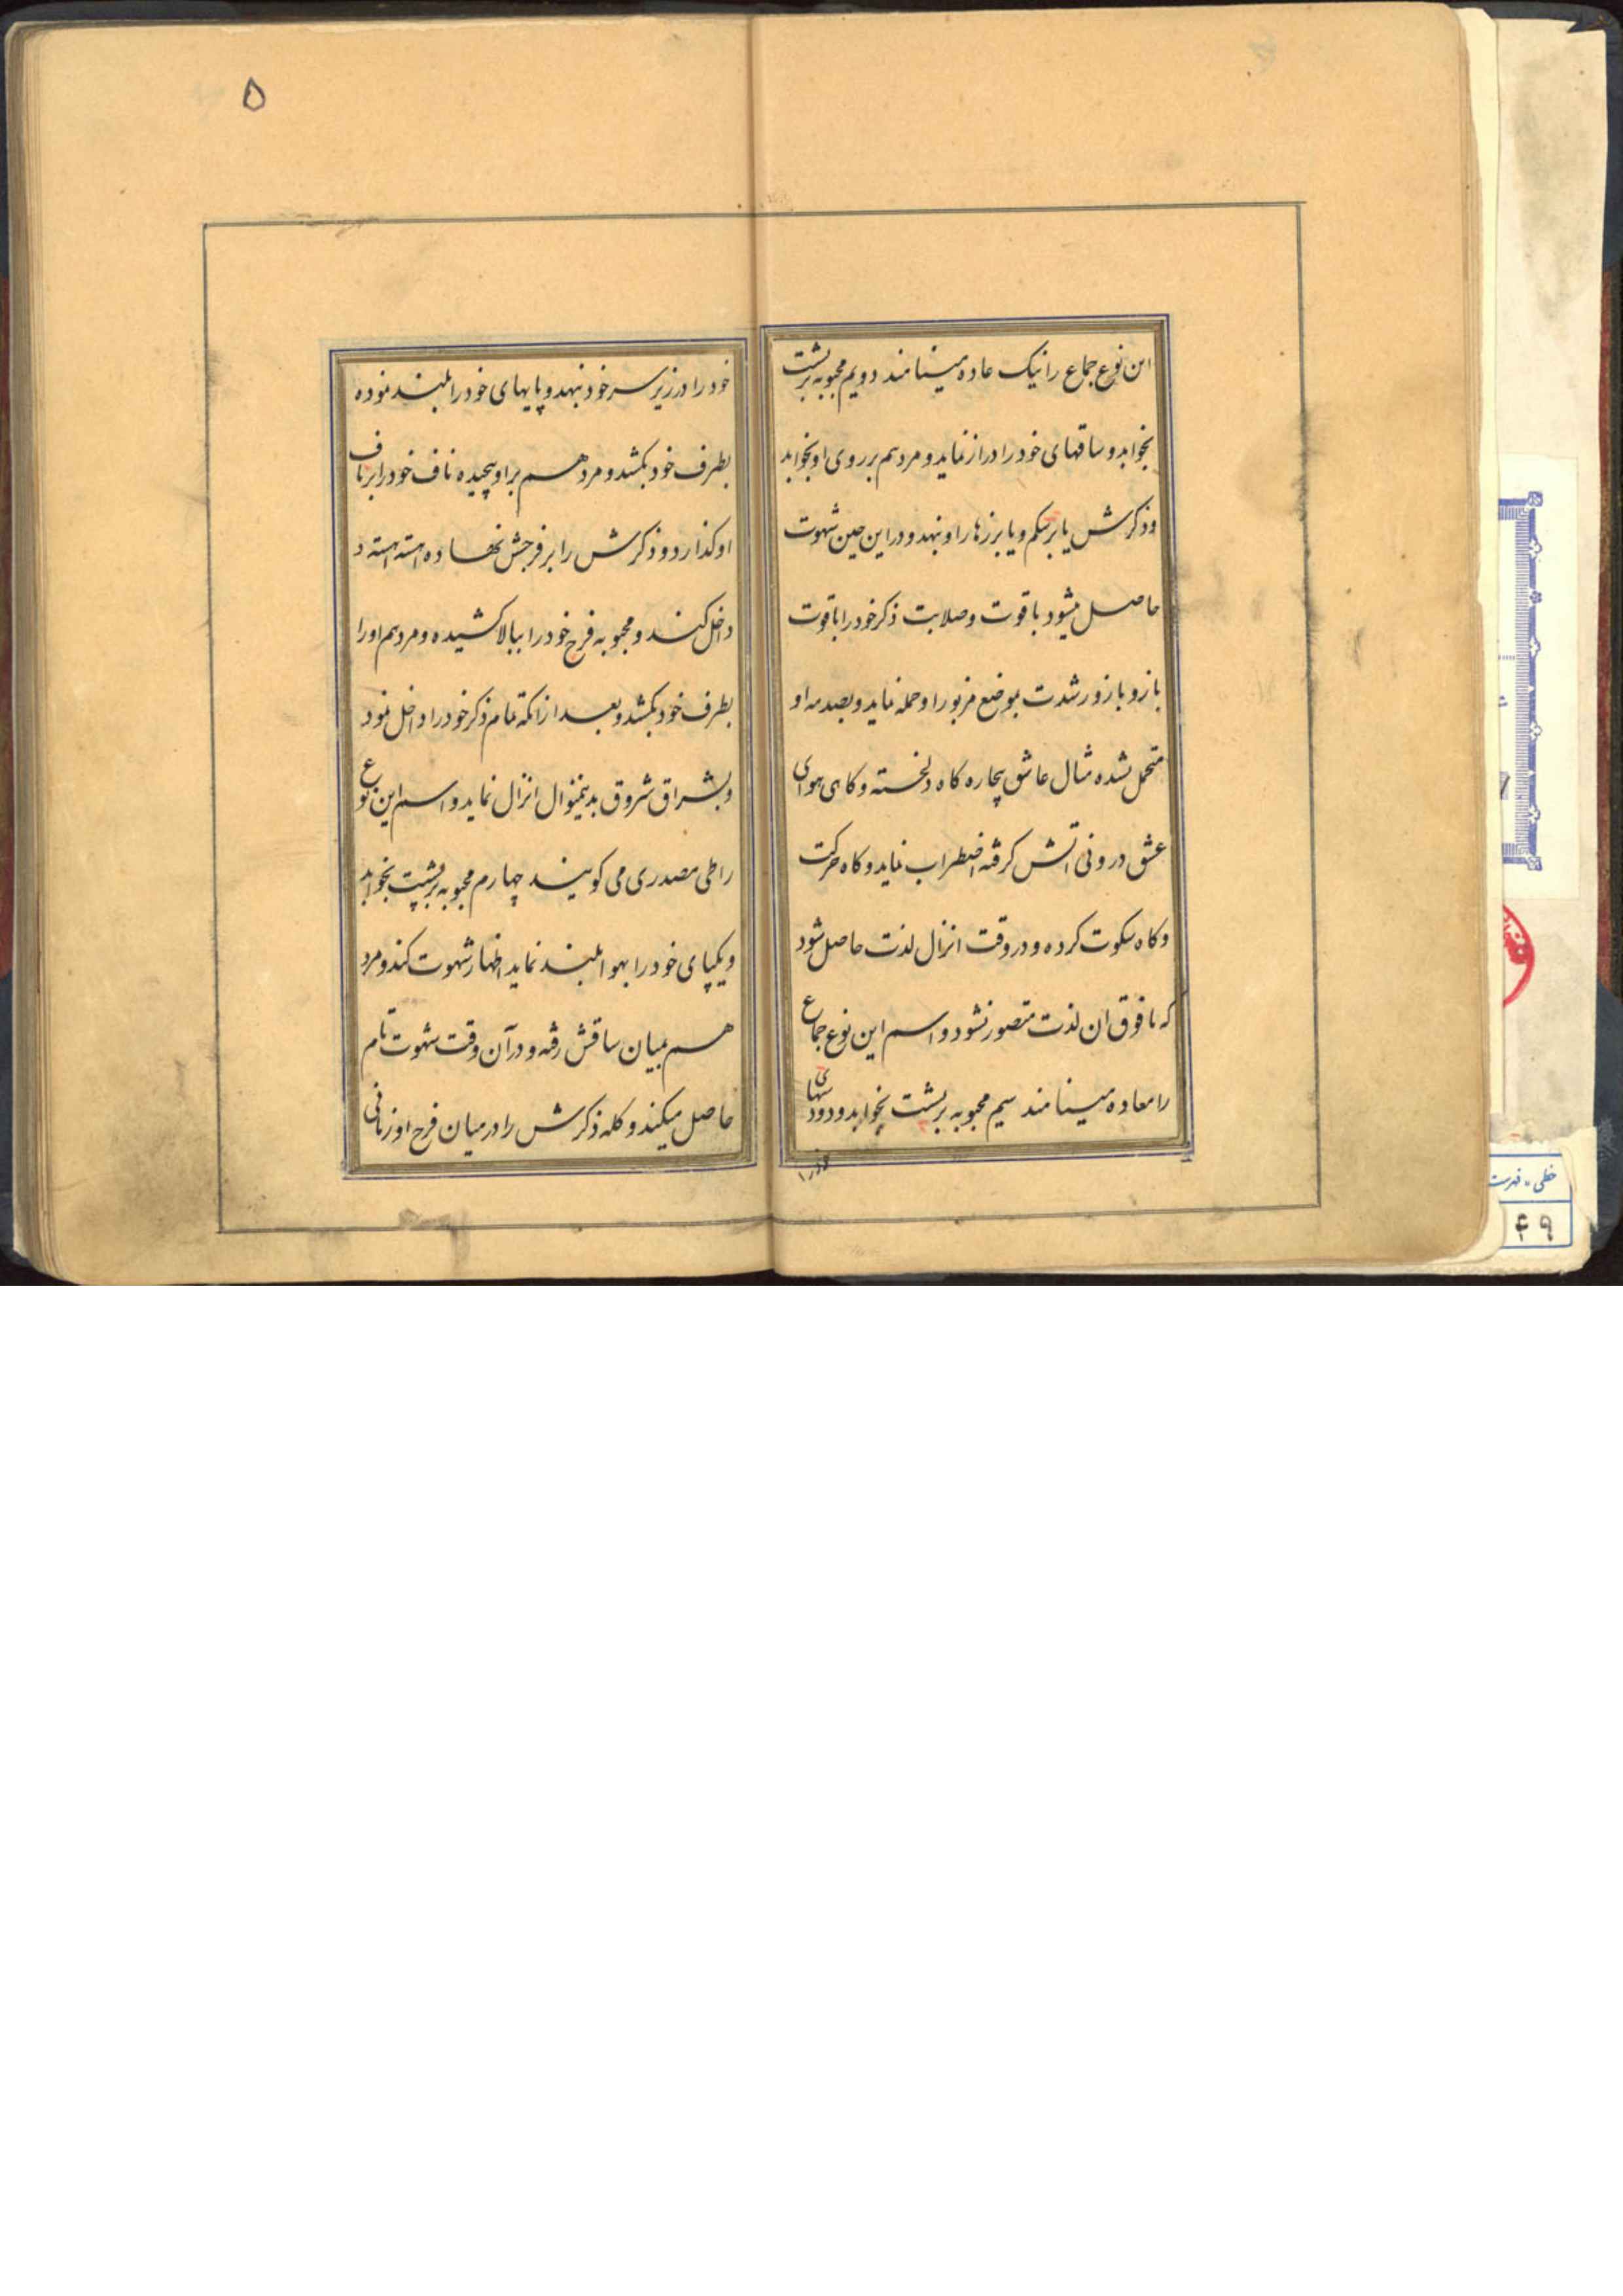 این نوع جماع را نیک عاده مینامند دویم محبوبه بر پشت
بخوابد و ساقهای خود را دراز نماید و مرد هم بر روی او بخوابد
و ذکرش یا بر شکم و یا بر زهار او بنهد و در این حین شهوت
حاصل میشود با قوت و صلابت ذکر خود را با قوت
بازو با زور شدت بموضع مزبور او حمله نماید و بصدمه او
متحمل نشده مثال عاشق بیچاره کاه دلخسته و کاهی هوای
عشق درونی اتش کرفته اضطراب نماید و کاه حرکت
و کاه سکوت کرده و در وقت انزال لذت حاصل شود
که مافوق ان لذت متصور نشود و اسم این نوع جماع
را معاده مینامند سیم محبوبه بر پشت بخوابد و دودستهای
خود را
۵
خود را در زیر سر خود بنهد و پایهای خود را بلند نموده
بطرف خود بکشد و مرد هم بر او پیچیده ناف خود را بر ناف
او کذارد و ذکرش را بر فرجش نهاده اهسته اهسته د
داخل کند و محبوبه فرج خود را ببالا کشیده و مرد هم او را
بطرف خود بکشد و بعد از انکه تمام ذکر خود را داخل نمود
و بشراق شروق بدینمنوال انزال نماید و اسم این نوع
را طی مصدری می کویند چهارم محبوبه بر پشت بخوابد
و یکپای خود را بهوا بلند نماید اظهار شهوت کند و مرد
هم بمیان ساقش رفته و در آن وقت شهوت تام
حاصل میکند و کله ذکرش را در میان فرج او زمانی
خطی - فهرست
۴۹